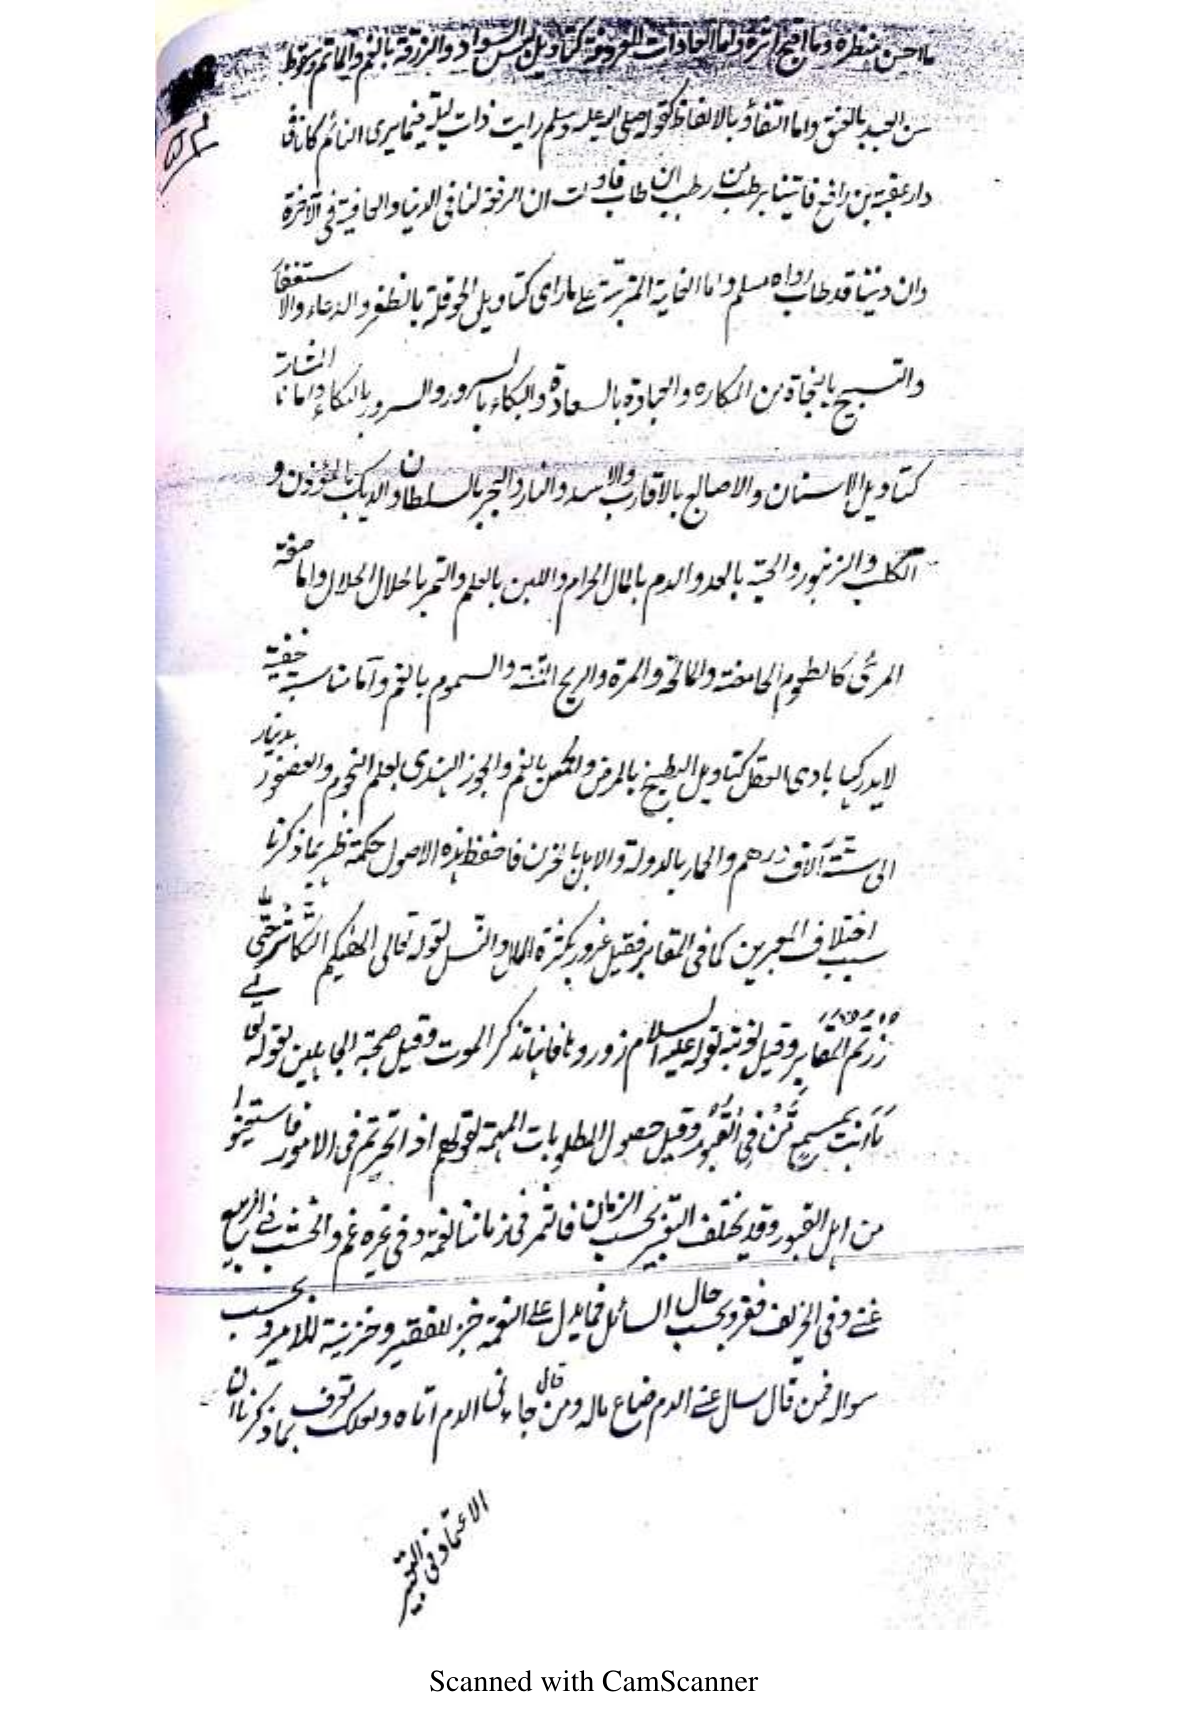 ما احسن منظره وما اقبح اثره واما العادات المعروفة كتاويل لبس السواد والزرقة بالغم والماتم وسقوط
من الجسد بالعنق واما التفاؤل بالالفاظ كقوله صلى الله عليه وسلم رايت ذات ليلة فيما يرى النائم كانا فى
دار عقبة بن رافع فاتينا برطب من رطب ابن طاب فاولت ان الرفعة لنا فى الدنيا والعافية فى الآخرة
وان ديننا قد طاب رواه مسلم واما الغاية المترتبة على ما راى كتاويل الحوقلة بالظفر والدعاء والاستغفار
والتسبيح بالنجاة من المكاره والعبادة بالسعادة والبكاء بالسرور والسرور بالبكاء واما المشاركة
كتاويل الاسنان والاصابع بالاقارب والاسد والنار والبحر بالسلطان والديك بالمؤذن و
الكلب والزنبور والحية بالعدو والدم بالمال الحرام واللبن بالعلم والتمر بالحلال الحلال واما صفة
المرئى كالطعوم الحامضة والمالحة والمرة والريح النتنة والسموم بالغم وآما مناسبة خفية
لا يدركها بادى العقل كتاويل البطيخ بالمرض والجبن بالغم والجوز الهندى بعلم النجوم والعصفور بدينار
الى ستة آلاف درهم والحمار بالدولة والابل بالحزن فاحفظ هذه الاصول حكمة ظهر بما ذكرنا
سبب اختلاف المعبرين كما فى المقابر فقيل غرور بكثرة المال والنسل لقوله تعالى الهٰىكم التكاثر حتى
زرتم المقابر وقيل توبة لقوله عليه السلام زوروها فانها تذكر الموت وقيل صحبة الجاهلين لقوله تعالى
ما انت بمسمع من فى القبور وقيل حصول المطلوبات المهمة لقولهم اذا تحيرتم فى الامور فاستعينوا
من اهل القبور وقد يختلف التعبير بحسب الزمان فالثمر فى زمانه نعمة وفى غيره غم والخشب فى الربيع
غنى وفى الخريف فقر وبحسب حال السائل فما يدل على النعمة خبز للفقير وخزينة للامير وبحسب
سواله فمن قال سال عنى الدم ضاع ماله ومن قال جاءنى الدم اتاه ولعلك تعرف بما ذكرنا ان
الاعتماد فى التعبير
Scanned with CamScanner